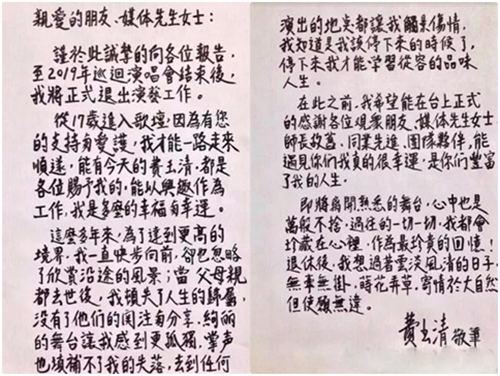 親愛的朋友、媒体先生女士：
謹於此誠摯的向各位報告，
至2019年巡迴演唱會結束後，
我將正式退出演藝工作。
從17歲進入歌壇，因為有您
的支持與愛護，我才能一路走來
順遂，能有今天的費玉清，都是
各位賜予我的，能以興趣作為
工作，我是多麼的幸福與幸運。
這麼多年來，為了達到更高的
境界，我一直快步向前，卻也忽略
了欣賞沿途的風景；當父母親
都去世後，我頓失了人生的歸屬，
沒有了他們的関注與分享，絢麗
的舞台讓我感到更孤獨，掌声
也填補不了我的失落，去到任何
演出的地点都讓我觸景傷情，
我知道是我該停下來的時候了，
停下來我才能学習從容的品味
人生。
在此之前，我希望能在台上正式
的感謝各位观眾朋友、媒体先生女士、
師長故舊、同業先進、團隊夥伴，能
遇見你們我真的很幸运，是你們豐富
了我的人生。
即將離開熟悉的舞台，心中也是
萬般不捨，過往的一切一切，我都會
珍藏在心裡，作為最珍貴的回憶！
退休後，我想過著雲淡風清的日子，
無牽無掛，蒔花弄草，寄情於大自然，
但使願無違。
費玉清 敬筆